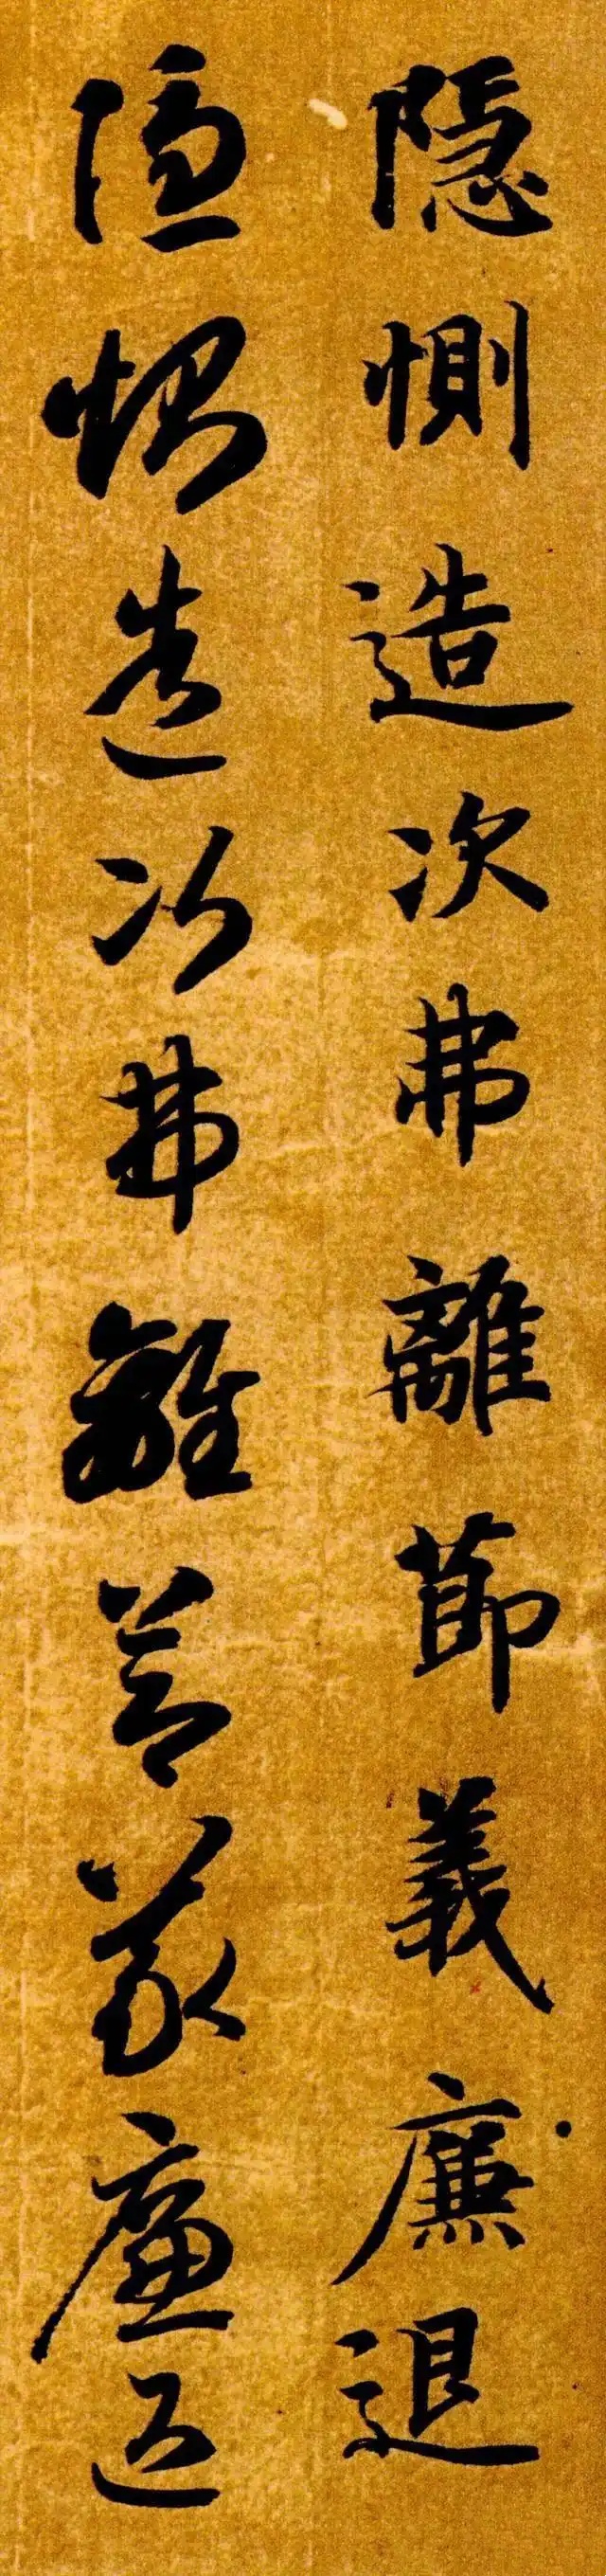 隐惻造次弗離節義廉退
隐惻造次弗離節義廉退